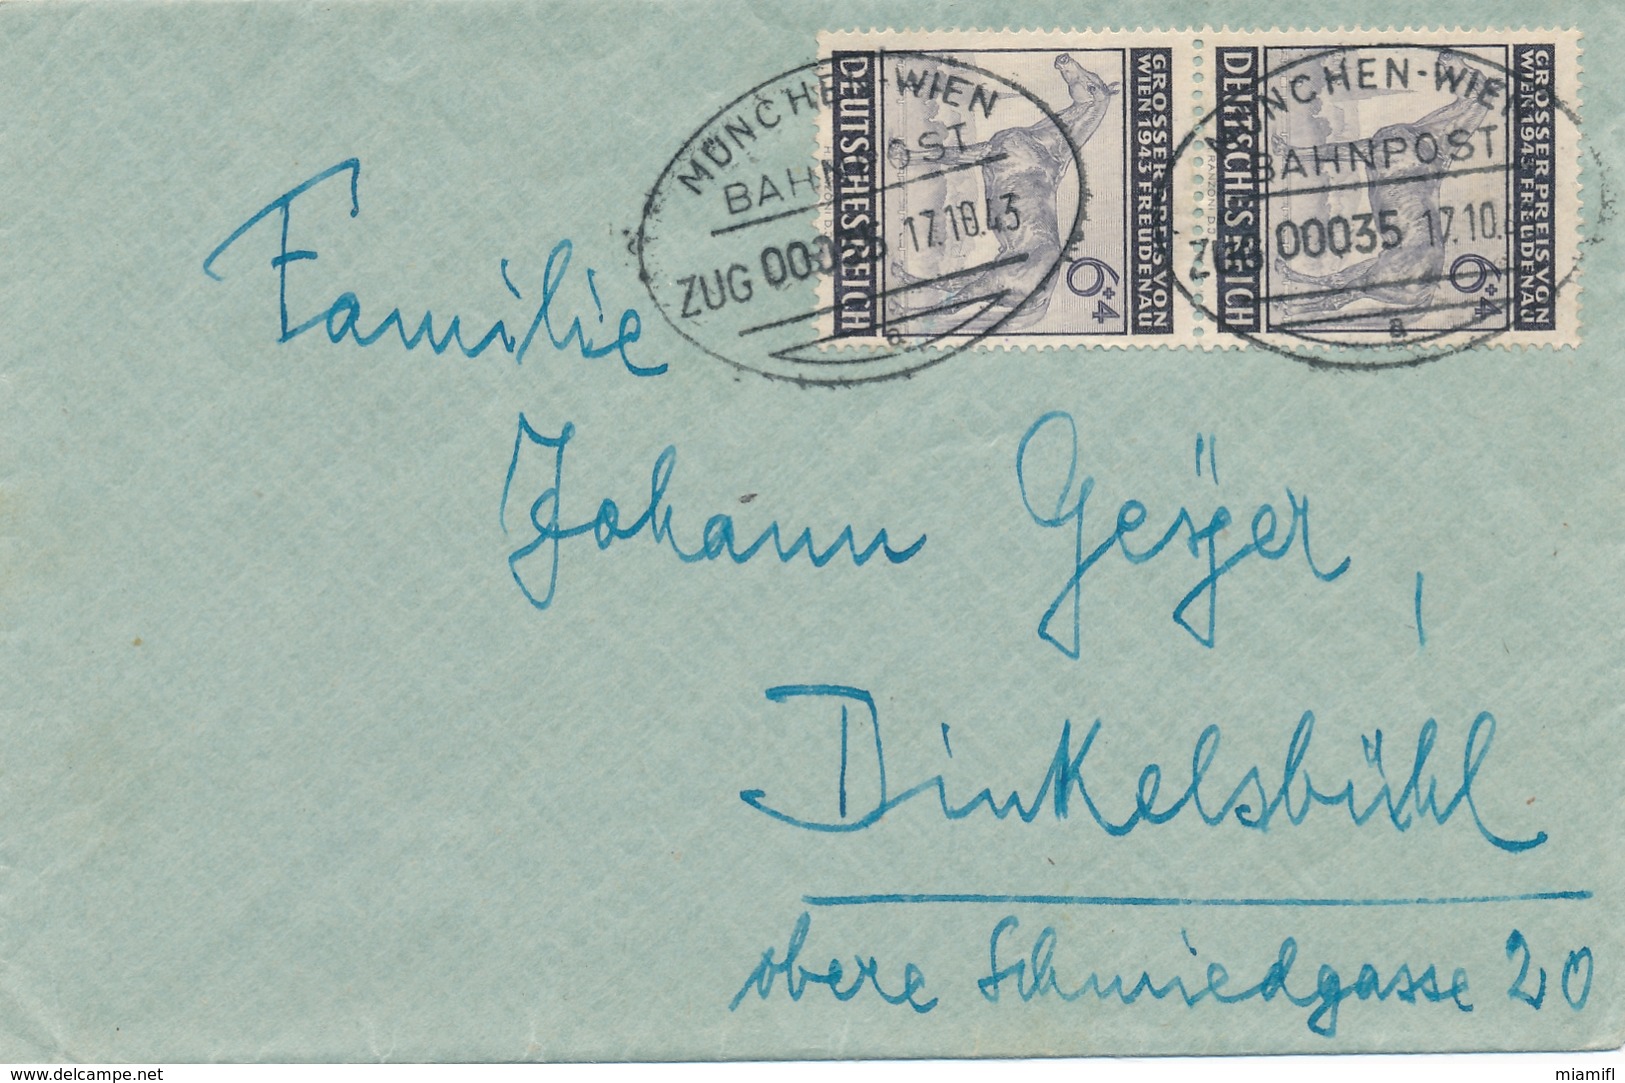 MÜNCHEN-WIEN
BAHNPOST
ZUG 00035 17.10.43
a
DEUTSCHES REICH
6+4
GROSSER PREIS VON
WIEN 1943 FREUDENAU
MÜNCHEN-WIEN
BAHNPOST
ZUG 00035 17.10.4
a
DEUTSCHES REICH
6+4
GROSSER PREIS VON
WIEN 1943 FREUDENAU
Familie
Johann Gesÿer,
Dinkelsbühl
obere Schmiedgasse 20
www.delcampe.net
miamifl